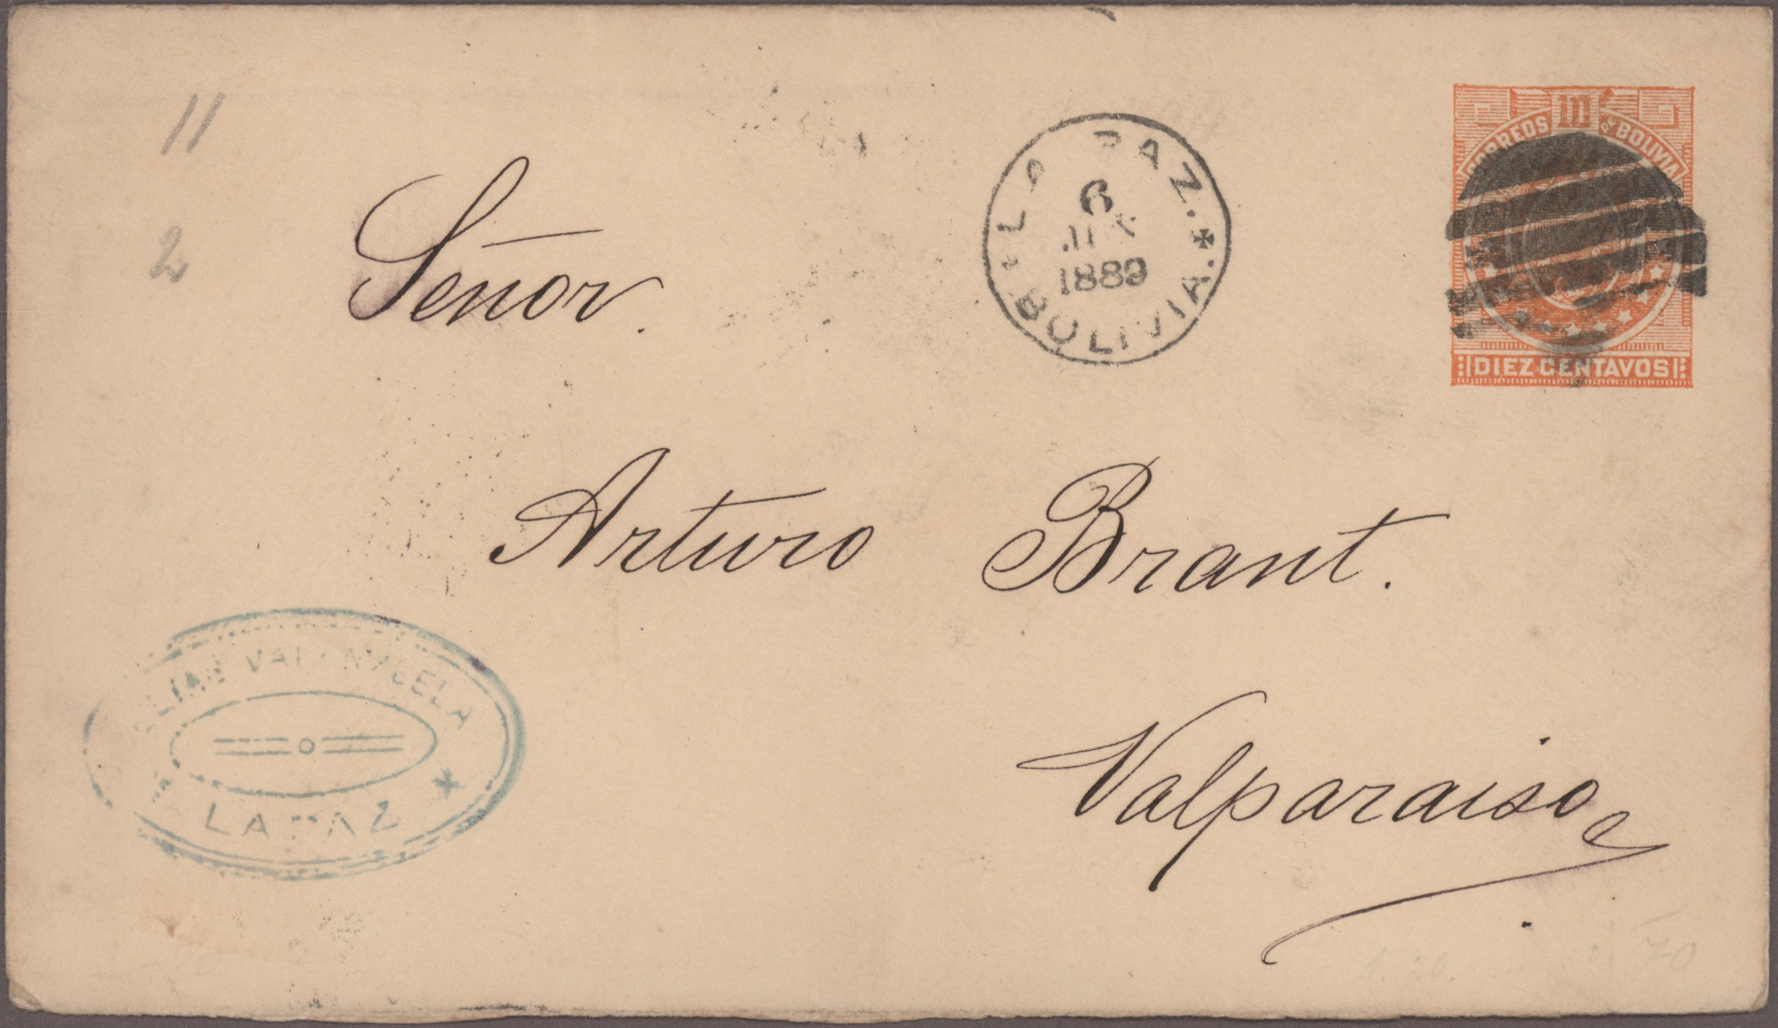 11
2
Señor.
LA PAZ.
6
JUN
1889
BOLIVIA.
10
CORREOS DE BOLIVIA
DIEZ CENTAVOS
Arturo Brant.
Valparaiso
VALENZUELA
LA PAZ
70